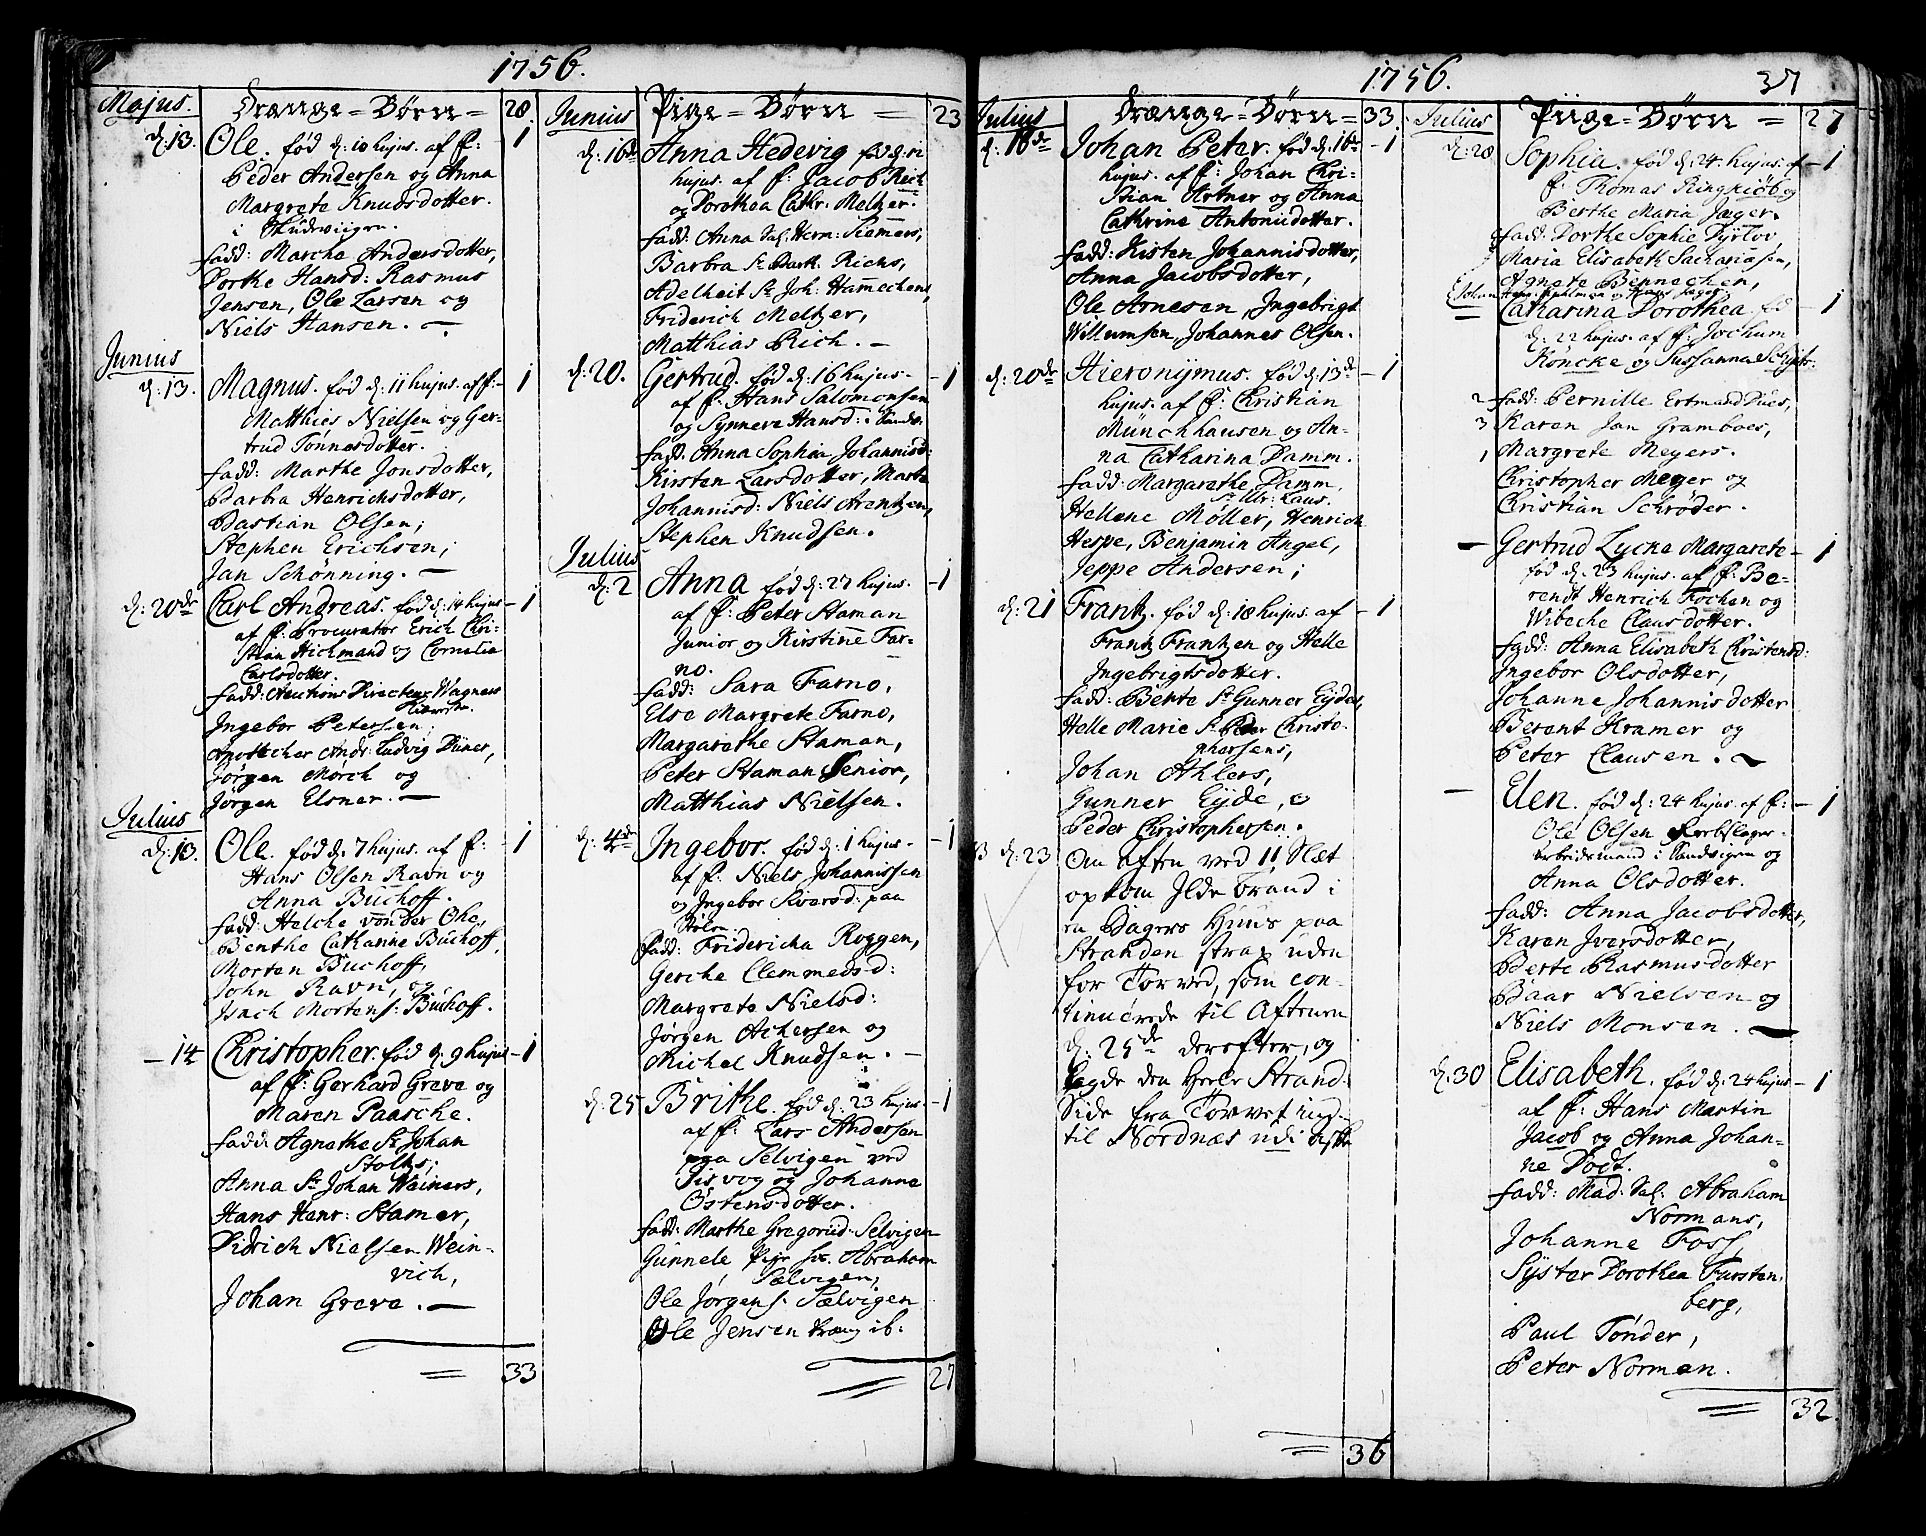 1756.
Majus. Drænge-Børn- 28.
d: 13. Ole. fød d: 10 hujus. af f: -1
Peder Andersen og Anna
Margrete Knudsdotter.
i Skudeviigen.
fadd: Marche Andersdotter,
Dorthe Hansd: Rasmus
Jensen, Ole Larsen og
Niels Hansen.
Junius
d: 13. Magnus. fød d: 11 hujus. af f: -1
Matthies Nielsen og Ger-
trud Tönnesdotter.
fadd: Marthe Jonsdotter,
Barba Henrichsdotter,
Bastian Olsen;
Stephen Erichsen;
Jan Schønning.
d: 20de Carl Andreas. fød d: 14 hujus -1
af f: Procurator Erich Chri-
stian Hichmand og Cornelia
Carlsdotter.
fadd: Auctions Directeur Wagners
Kiæreste.
Ingebor Petersen.
Apothecher Andr: Ludvig Düner,
Jørgen Mörch og
Jørgen Elsner.
Julius
d: 13. Ole. fød d: 7 hujus. af f: -1
Hans Olsen Ravn og
Anna Buchoff.
fadd: Helche von der Ohe,
Benthe Cathanne Buchoff,
Morten Buchoff,
John Ravn, og
Isach Mortens: Buchoff.
- 14 Christopher. fød d: 9 hujus -1
af f: Gerhard Greve og
Maren Paasche.
fadd: Agnethe Sr Johan
Stolts;
Anna Sr Johan Weiners,
Hans Henr: Stamer,
Didrich Nielsen Wein-
vich,
Johan Greve.
33
Junius Pige-Børn = 23
d: 16de Anna Hedevig fød d: 11
hujus. af f: Jacob Reich
og Dorothea Cathr: Meltzer.
fadd: Anna Sal: Herm: Siemers,
Barbra Sr Barth. Richs,
Adelheit Sr Joh: Hamechens,
Friderich Meltzer,
Matthias Rich.
d: 20. Gertrud. fød d: 16 hujus- -1
af f: Hans Salomonsen
og Synneve Hansd:
fadd: Anna Sophia Johannisd:
Kirsten Larsdotter, Marte
Johannisd: Niels Arentzen,
Stephen Knudsen.
Julius
d: 2 Anna fød d: 27 hujus. -1
af f: Peter Staman
Junior og Kirstine Far-
no.
fadd: Sara Farno,
Else Margrete Farno,
Margarethe Staman,
Peter Staman Senior,
Matthias Nielsen.
d: 4de Ingebor. fød d: 1 hujus- -1
af f: Niels Johannissen
og Ingebor Siversd: paa
Stølen.
fadd: Fridericha Roggen,
Gerche Clemmedsd:
Margrete Nielsd:
Jørgen Achersen og
Michel Knudsen.
d: 25 Brithe. fød d: 23 hujus. -1
af f: Lars Andersen
paa Selvigen ved
og Johanne
Östensdotter.
fadd: Marthe Gregorid: Selvigen
Gunnele Pige hr. Abraham
Sælvigen,
Ole Jørgens: Sælvigen
Ole Jensen Dreng ib:
27
1756. 37
Julius Drænge-Børn= 33
d: 16de Johan Peter. fød d: 16de -1
hujus. af f: Johan Chri-
stian Artner og Anna
Cathrine Antoniidotter.
fadd: Kisten Johannisdotter,
Anna Jacobsdotter,
Ole Arnesen, Ingebrigt
Willumsen, Johannes Olsen.
d: 20de Hieronijmus. fød d: 13de -1
hujus. af f: Christian
Münchhausen og An-
na Catharina Damm.
fadd: Margarethe Damm,
Sr Ulr: Laus.
Hellene Møller, Henrich
Hespe, Benjamin Angel,
Jeppe Andersen;
d: 21 Frantz. fød d: 18 hujus. af -1
Frantz Frantzen og Helle
Ingebrigtsdotter.
fadd: Bente Sr Gunner Eydes,
Helle Marie Sr Peder Christo-
phersens,
Johan Ahlers,
Gunner Eijde, og
Peder Christophersen.
d: 23 Om aften ved 11 Slæt
opkom Ilde brand i
en Bagers Huus paa
Stranden strax uden
for Torved, som con-
tinuerede til Aftenen
d: 25de derefter, og
lagde den heele Strand-
Side fra Torvet ind-
til Nordnæs udi aske
36
Julius Piige-Børn = 27
d: 28 Sophia. fød d: 24 hujus. af -1
f: Thomas Ringkiöb og
Berthe Maria Jæger.
fadd: Dorthe Sophie Dyrtov,
Maria Elisabeth Sachariasen,
Agnete Bennechen,
Catharina Dorothea. fød -1
d: 22 hujus. af f: Jochum
Köncke og Sussanna
2 fadd: Pernille Ertmand Dues,
3 Karen Jan Gramboes,
1 Margrete Meyers.
Christopher Meyer og
Christian Schrøder.
- Gertrud Lycka Margarete- -1
fød d: 23 hujus. af f: Be-
rendt Henrich Fochen og
Wibeche Clausdotter.
fadd: Anna Elisabeth Christensd:
Ingebor Olsdotter,
Johanne Johannisdotter
Berent Kramer og
Peter Clausen.
- Elen. fød d: 24 hujus. af f: -1
Ole Olsen Reebslager-
arbeidsmand i Sandvigen og
Anna Olsdotter.
fadd: Anna Jacobsdotter,
Karen Iversdotter,
Berte Rasmusdotter
Baar Nielsen og
Niels Monsen.
d: 30 Elisabeth. fød d: 24 hujus -1
af f: Hans Martin
Jacob og Anna Johan-
ne Vogt.
fadd: Mad: Sal: Abraham
Normans,
Johanne Foss,
Syster Dorothea Fursten-
berg,
Paul Tönder,
Peter Norman.
32